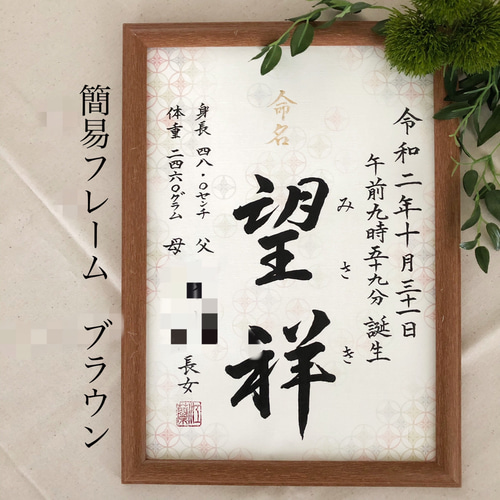 令和二年十月三十一日
午前九時五十九分 誕生
みさき
望祥
命名
身長 四八・〇センチ 父
体重 二四六〇グラム 母
長女
簡易フレーム ブラウン